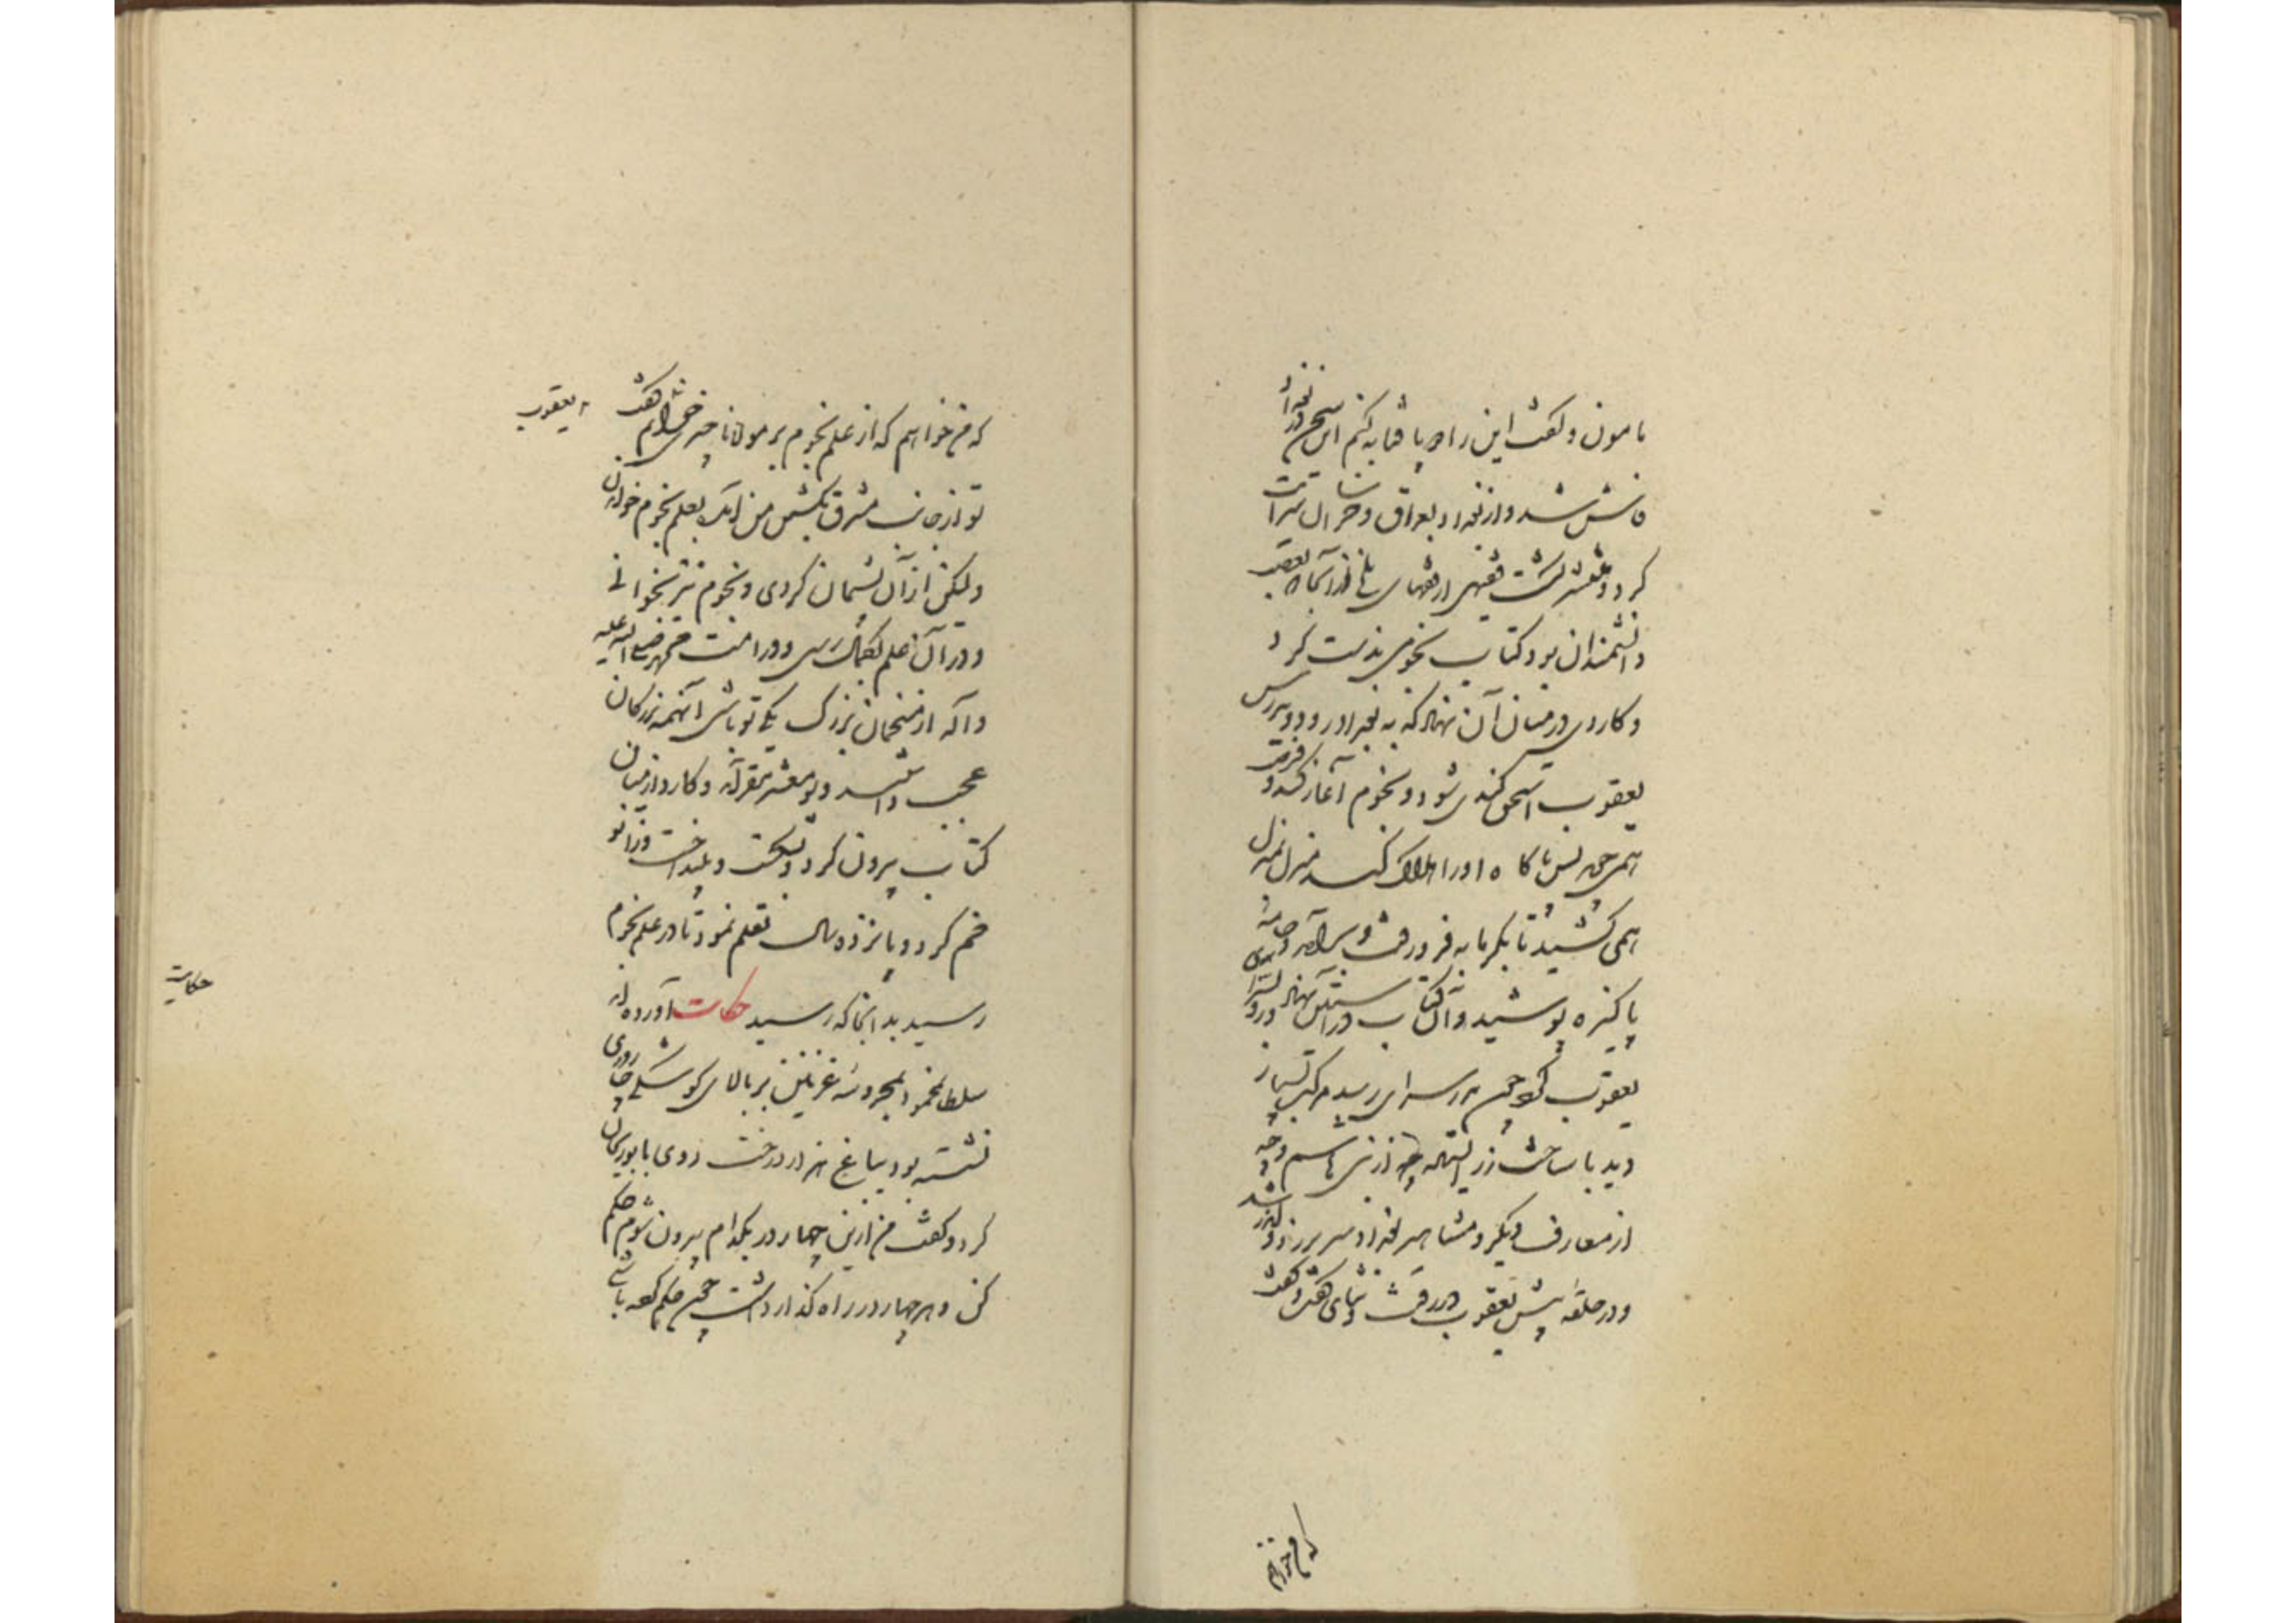 مامون و گفت این را در یافتیم این سخن در بغداد
فاش شد و از بغداد بعراق و خراسان سرایت
کرد و منتشر گشت فقیهی از فقهای بلخ از آنجا که تعصب
دانشمندان بود کتابی نجومی بدست کرد
و کاردی در میان آن نهاد که به بغداد رود و بدرس
یعقوب اسحق کندی شود و نجوم آغاز کند و فرصت
همی جوید پس ناگاه او را هلاک کند منزل بمنزل
همی کشید تا بگرمابه فرو رفت و برآمد و جامهٔ
پاکیزه پوشید و آن کتاب در آستین نهاد و روی بسرای
یعقوب کرد چون بدر سرای رسید مرکب بسیار
دید با ساخت زر ایستاده چه از بنی هاشم و چه
از معارف دیگر و مشاهیر بغداد سر بزد و اندر شد
و در حلقه پیش یعقوب در رفت و ثنای گفت و گفت
که می خواهم
که می خواهم که از علم نجوم بر مولانا چیزی خوانم گفت
یعقوب
تو از جانب مشرق بکشتن من آمدی نه بعلم نجوم خواندن
ولیکن از آن پشیمان گردی و نجوم نیز بخوانی
و در آن علم بکمال رسی و در امت محمد صلی الله علیه
و آله از منجمان بزرگ یکی تو باشی آنهمه بزرگان
عجب داشتند و بو معشر مقر آمد و کارد از میان
کتاب بیرون کرد و بشکست و بینداخت و زانو
خم کرد و پانزده سال تعلم نمود تا در علم نجوم
رسید بدانجا که رسید حکایت آورده اند
حکایت
سلطان محمود بمحروسهٔ غزنین بر بالای کوشکی چهار دری
نشسته بود بباغ هزار درخت روی بابوریحان
کرد و گفت من ازین چهار در بکدام بیرون شوم حکم
کن و هر چهار در راه گذار داشت چون حکم کرده باشی